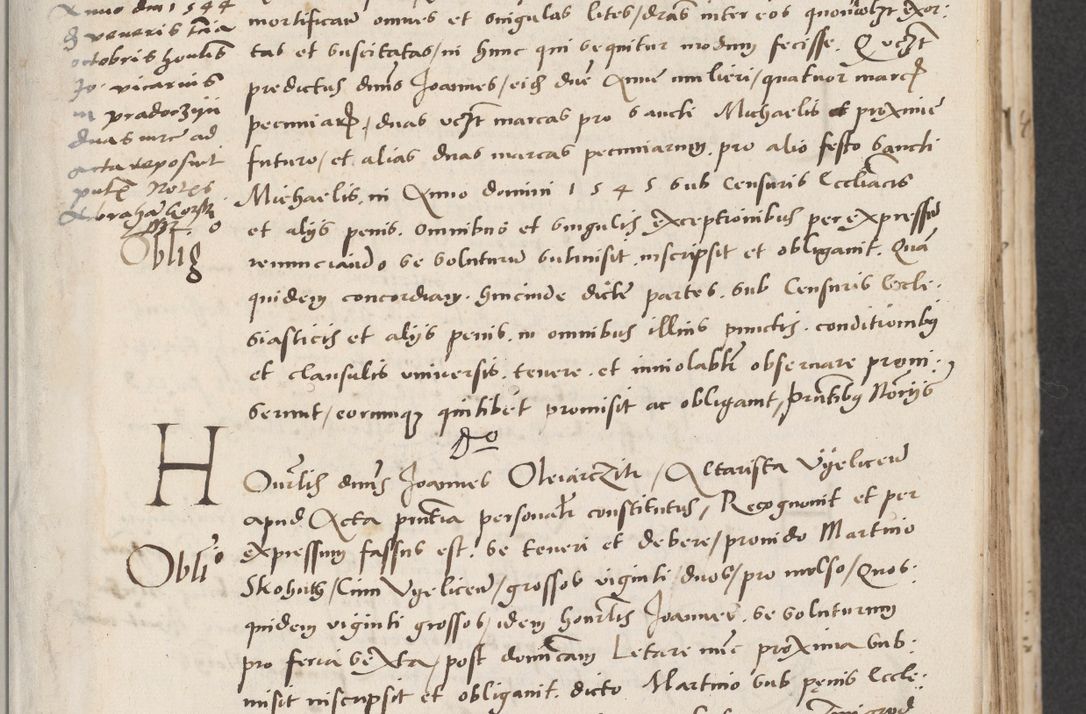 Anno dni 1544
die veneris
octobris
Jo. vicarius
in pradoczijn
duas mrc ad
acta reposuit
Notes
Abraham
Oblig
mortificaui omnes et singulas lites, inter eos exor:
tas et suscitatas, in hunc qui sequitur modum fecisse. Quod
predictus dnus Joannes, eidem dne Anne mulieri, quatuor marcas
pecuniarum, duas marcas pro S ancti Michaelis et proxime
futuro, et alias duas marcas pecuniarum. pro alio festo Sancti
Michaelis, in Anno domini 1545 sub Censuris Eccliacis
et alijs penis. Omnibus et singulis Exceptionibus per expressum
renunciando se soluturum submisit, inscripsit et obligauit. Quam
quidem concordiam. hincinde dicte partes. sub Censuris Eccle:
siasticis et alijs penis. in omnibus illius punctis. conditionibus
et clausulis vniversis. tenere. et inuiolabiliter obseruare promi:
serunt, eorumque quilibet promisit ac obligauit, prntibus Notarijs
H
Honorabilis dnus Joannes Oleiarczik, Altarista Vyelicen
apud Acta prntia personaliter constitutus, Recognouit et per
Oblio
expressum fassus est. se teneri et debere, prouido Martino
Skohuth, Ciui Vyelicen, grossos viginti, duos, pro mulso, Quos:
quidem viginti grossos, idem honorabilis Joannes. se soluturum
pro feria sexta, post dominicam Letare nunc proxima sub:
misit inscripsit et obligauit. dicto Martino sub penis Eccle: